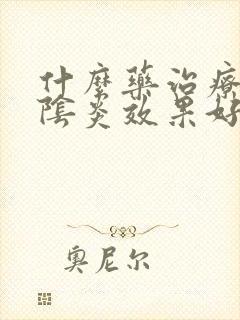 什麼藥治療
陰炎效果好
奧尼尔